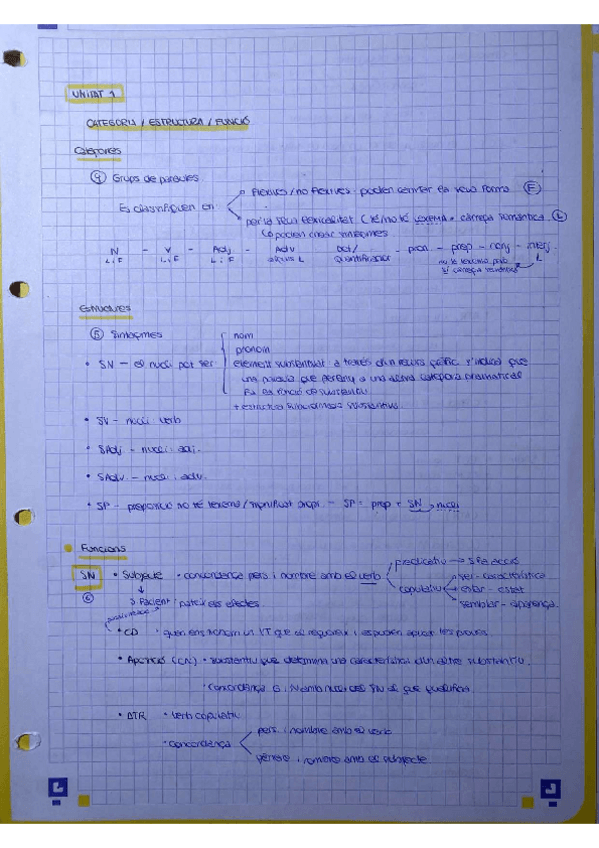 UNITAT 1
CATEGORIA / ESTRUCTURA / FUNCIÓ
Categories
9 Grups de paraules
Es classifiquen en
flexives / no flexives: poden canviar la seua forma F
per la seua lexicalitat (té/no té lexema = càrrega semàntica L
poden crear sintagmes
N - V - Adj - Adv Det/ - pron. - prep - conj - interj.
L i F L i F L i F L
quantificador no té lexema però L
sí càrrega semàntica
Estructures
5 Sintagmes
nom
pronom
• SN - el nucli pot ser: element substantivat: a través d'un recurs gràfic s'indica que
una paraula que pertany a una altra categoria gramatical
fa la funció de substantiu
+ estructura subordinada substantiva
• SV - nucli: verb
• SAdj - nucli: adj.
• SAdv - nucli: adv.
• SP - preposició no té lexema / significat propi - SP = prep + SN → nucli
Funcions
SN • Subjecte • concordança pers i nombre amb el verb
predicatiu → S fa acció
copulatiu
ser - característica
estar - estat
semblar - aparença
6
↓
S Pacient: pateix els efectes
• CD • quan ens trobem un VT que el requereix i es poden aplicar les proves.
• Aposició (CN) • substantiu que determina una característica d'un altre substantiu.
• Concordança G i N amb nucli del SN al que qualifica.
• ATR • verb copulatiu
• concordança
pers. i nombre amb el verb
gènere i número amb el subjecte